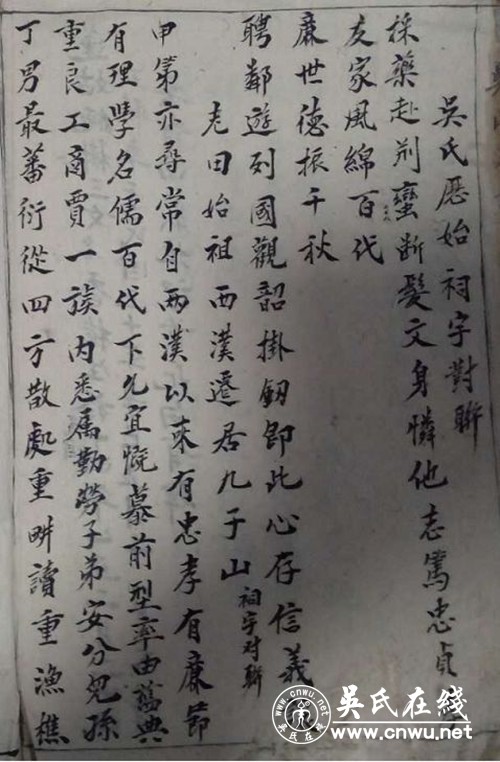 吳氏歷始祠宇對聯
採藥赴荊蠻斷髮文身憐他志篤忠貞
友家風綿百代
廉世德振千秋
聘鄰遊列國觀韶掛釰即此心存信義
老田始祖西漢遷居九于山 祠宇对聯
甲第亦尋常自兩漢以來有忠孝有廉節
有理學名儒百代下允宜慨慕前型率由舊典
重良工商賈一族內悉属勤勞子弟安分兒孫
丁男最蕃衍從四方散處重畊讀重漁樵
吴氏在线
www.cnwu.net